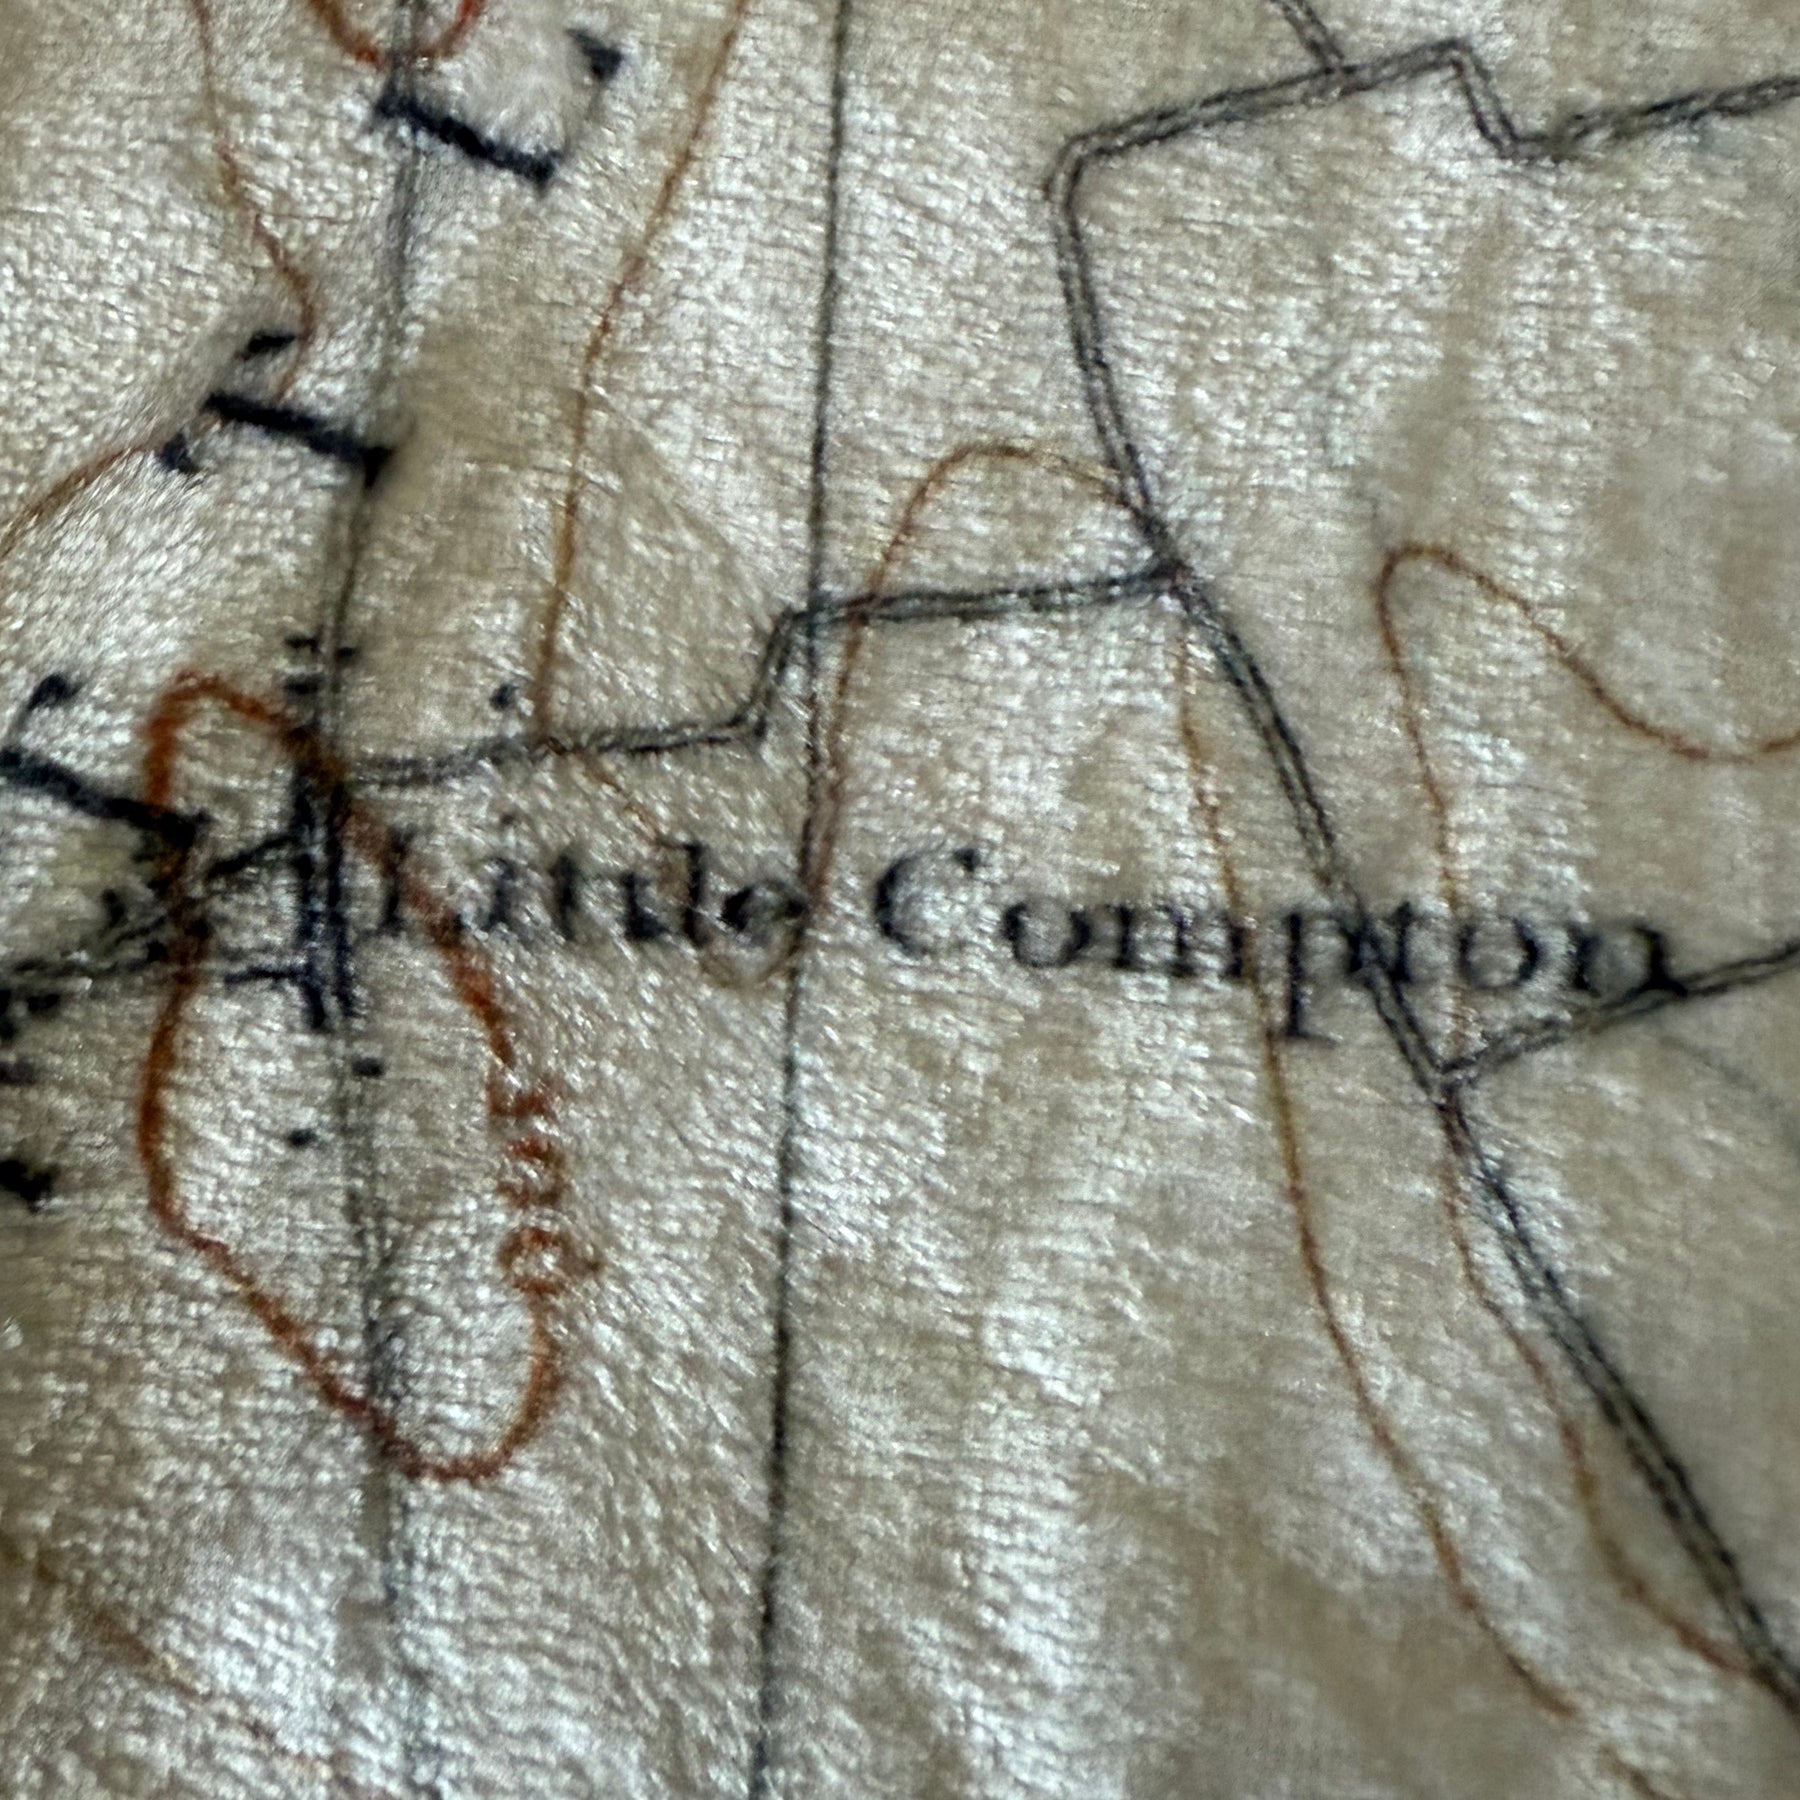 Little Compton
100